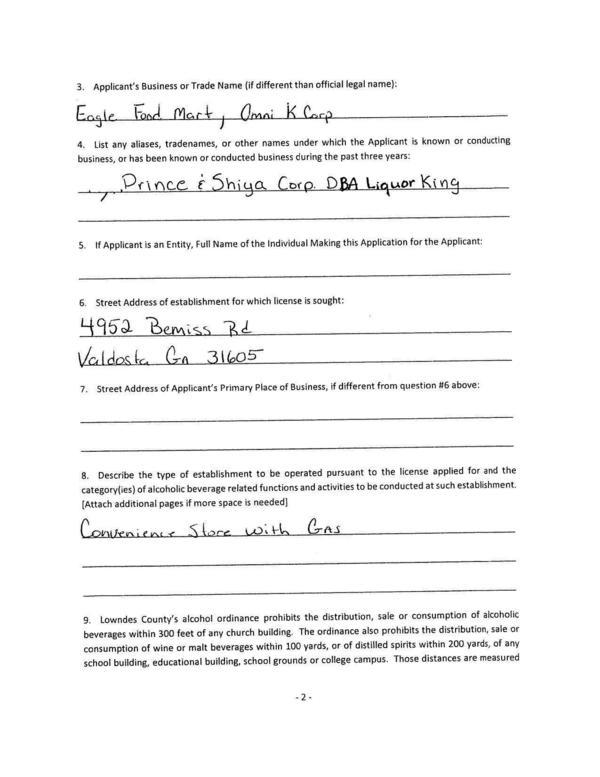 3. Applicant's Business or Trade Name (if different than official legal name):
Eagle Food Mart, Omni K Corp
4. List any aliases, tradenames, or other names under which the Applicant is known or conducting
business, or has been known or conducted business during the past three years:
Prince & Shiya Corp. DBA Liquor King
5. If Applicant is an Entity, Full Name of the Individual Making this Application for the Applicant:
6. Street Address of establishment for which license is sought:
4952 Bemiss Rd
Valdosta Ga 31605
7. Street Address of Applicant's Primary Place of Business, if different from question #6 above:
8. Describe the type of establishment to be operated pursuant to the license applied for and the
category(ies) of alcoholic beverage related functions and activities to be conducted at such establishment.
[Attach additional pages if more space is needed]
Convenience Store with Gas
9. Lowndes County's alcohol ordinance prohibits the distribution, sale or consumption of alcoholic
beverages within 300 feet of any church building. The ordinance also prohibits the distribution, sale or
consumption of wine or malt beverages within 100 yards, or of distilled spirits within 200 yards, of any
school building, educational building, school grounds or college campus. Those distances are measured
- 2 -